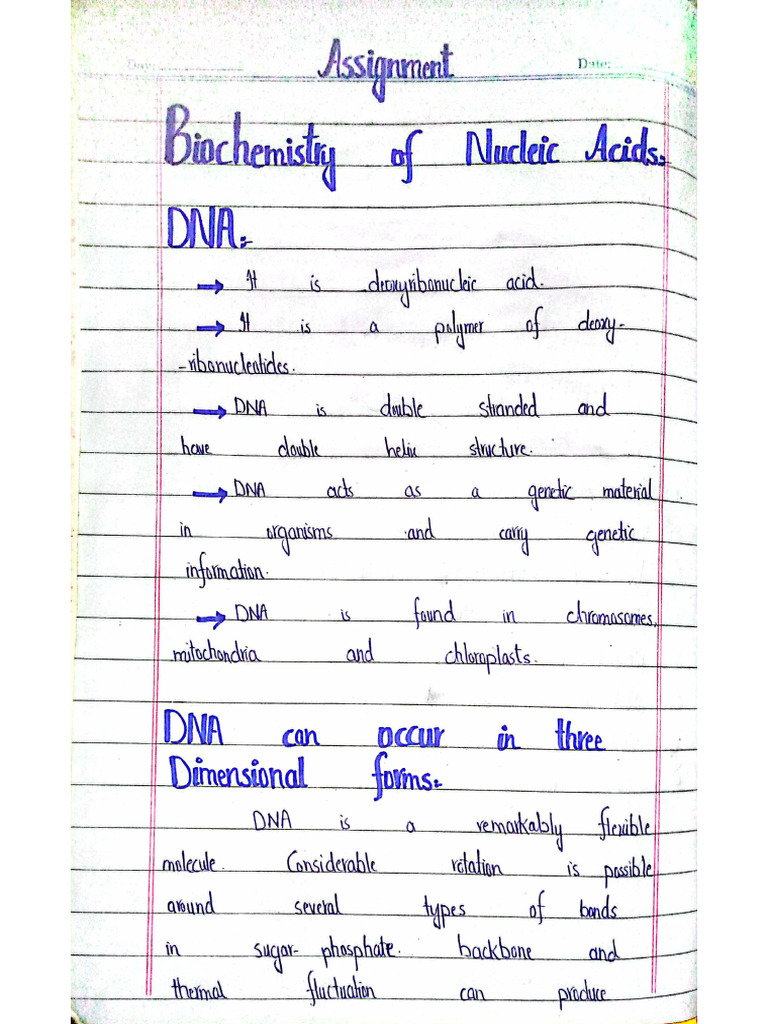 Assignment
Day: Date:
Biochemistry of Nucleic Acids:-
DNA:-
→ It is deoxyribonucleic acid.
→ It is a polymer of deoxy-
-ribonucleotides.
→ DNA is double stranded and
have double helix structure.
→ DNA acts as a genetic material
in organisms and carry genetic
information.
→ DNA is found in chromosomes,
mitochondria and chloroplasts.
DNA can occur in three
Dimensional forms:-
DNA is a remarkably flexible
molecule. Considerable rotation is possible
around several types of bonds
in sugar-phosphate. backbone and
thermal fluctuation can produce